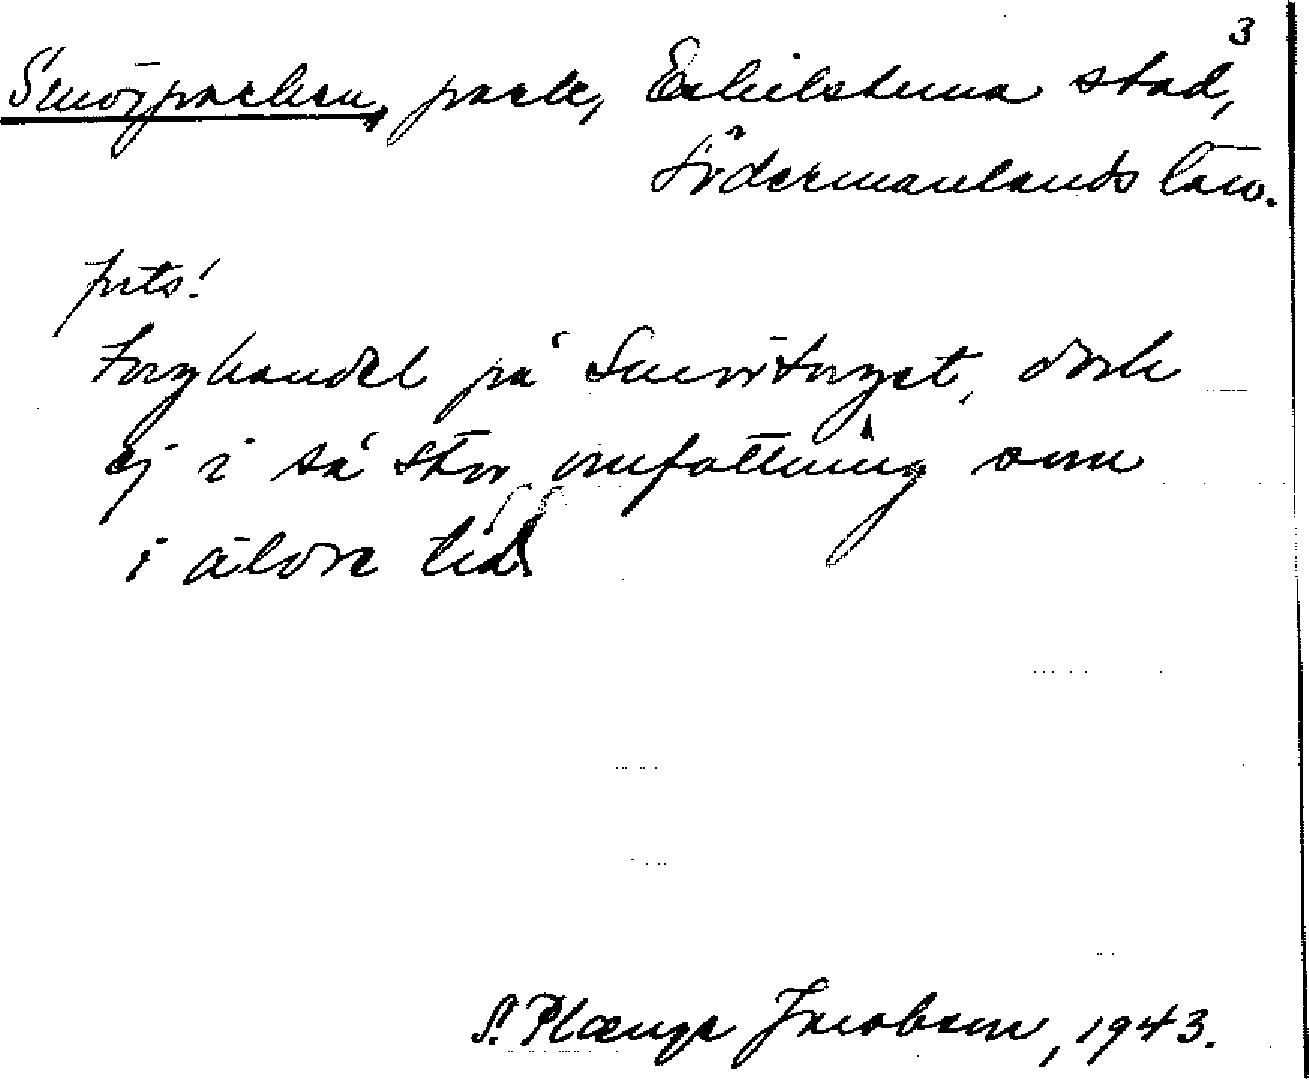 3
Smörparken, park, Eskilstuna stad,
Södermanlands län.
forts!
Torghandel på Smörtorget, dock
ej i så stor omfattning som
i äldre tid
S. Plænge Jacobson, 1943.